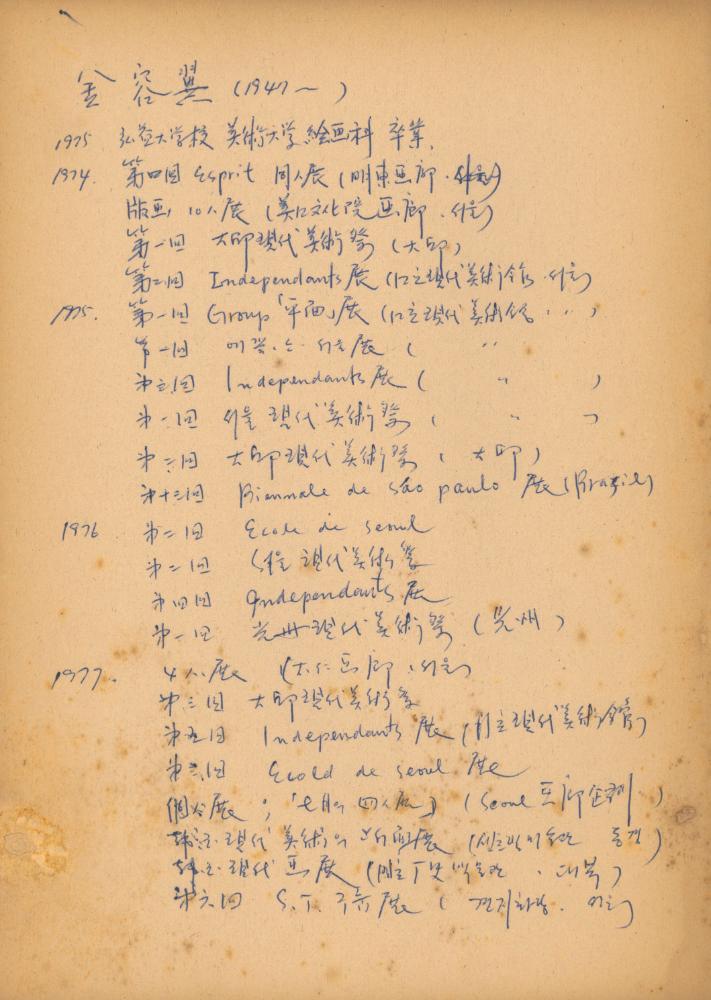 金容翼 (1947~ )
1975 弘益大学校 美術大学 絵画科 卒業.
1974. 第四回 Esprit 同人展 (明東画廊·서울)
版画 10人展 (美口文化院画廊·서울)
第一回 大邱現代美術祭 (大邱)
第二回 Independants 展 (口立現代美術館·서울)
1975. 第一回 Group「平面」展 (口立現代美術館· 〃 )
第一回 에꼴·드·서울展 ( 〃
第三回 Independants 展 ( 〃 )
第一回 서울 現代美術祭 ( 〃 )
第二回 大邱現代美術祭 ( 大邱 )
第十三回 Biennale de São paulo 展 (Brazil)
1976 第二回 Ecole de seoul
第二回 서울 現代美術祭
第四回 Independants 展
第一回 光州現代美術祭 (光州)
1977. 4人展 (大仁画廊·서울)
第三回 大邱現代美術祭
第五回 Independants 展 (口立現代美術館)
第三回 Ecold de seoul 展
個人展 ; 「七月의 四人展」 (Seoul 画廊企劃)
韓国現代美術의 断面展 (센트랄미술관 동경)
韓国現代画展 (역사박물관·대북)
第六回 S.T. 그룹展 (견지화랑·서울)